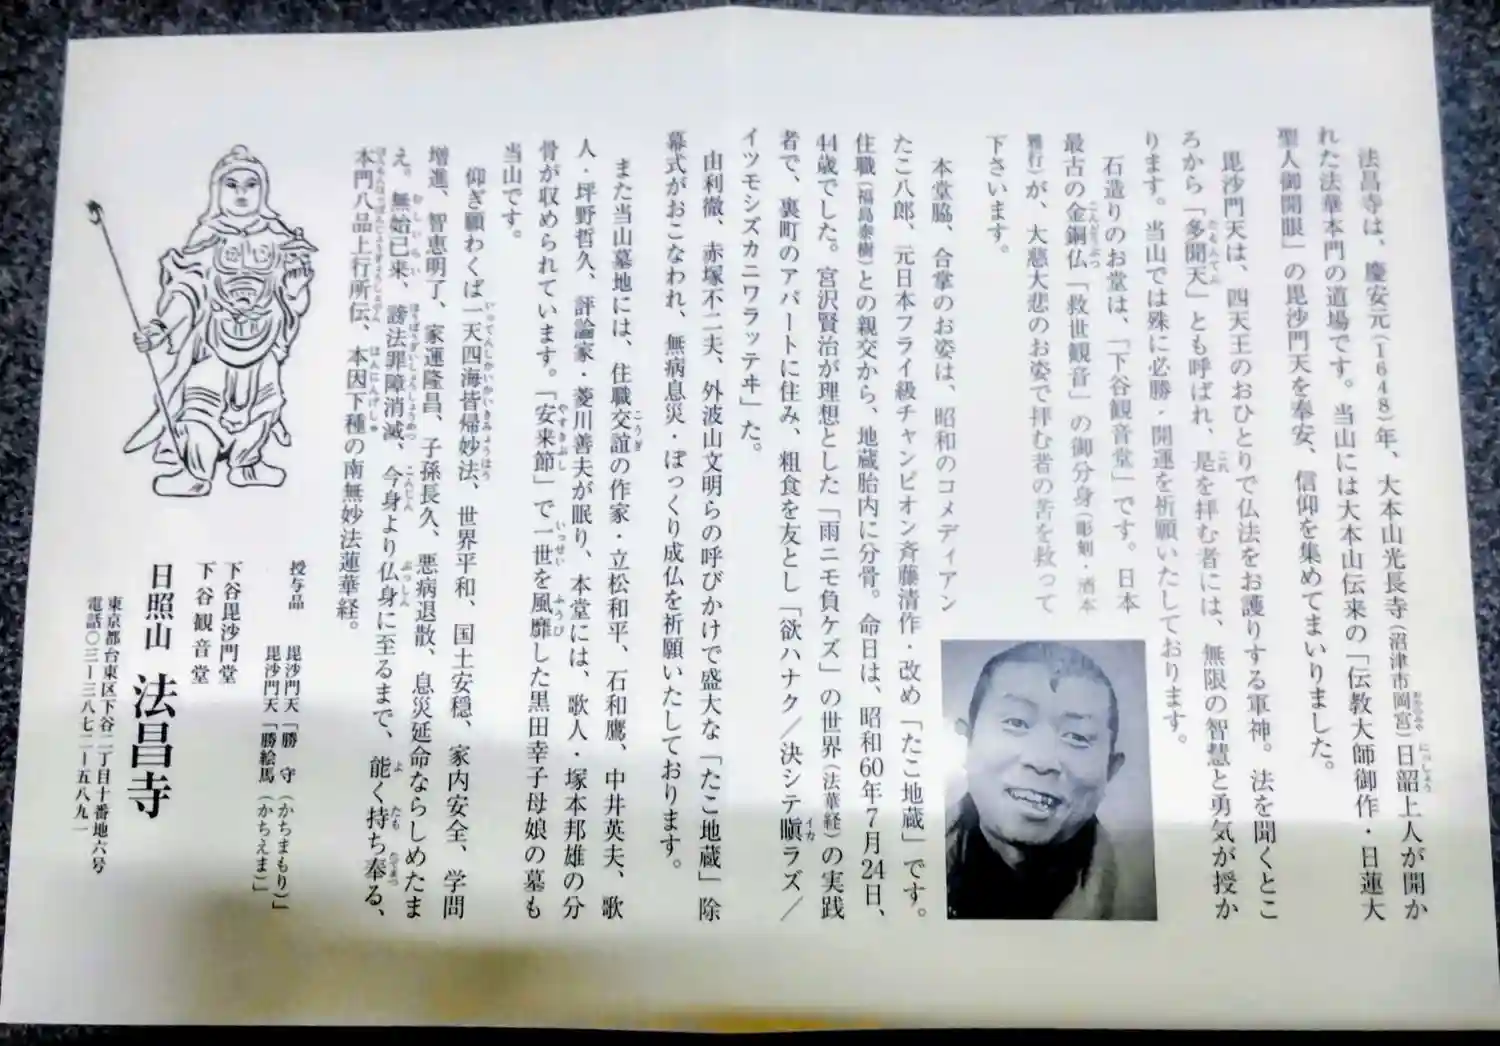 法昌寺は、慶安元(1648)年、大本山光長寺(沼津市岡宮)日韶上人が開か
れた法華本門の道場です。当山には大本山伝来の「伝教大師御作・日蓮大
聖人御開眼」の毘沙門天を奉安、信仰を集めてまいりました。
毘沙門天は、四天王のおひとりで仏法をお護りする軍神。法を聞くとこ
ろから「多聞天」とも呼ばれ、是を拝む者には、無限の智慧と勇気が授か
ります。当山では殊に必勝・開運を祈願いたしております。
石造りのお堂は、「下谷観音堂」です。日本
最古の金銅仏「救世観音」の御分身(彫刻・
雅行)が、大慈大悲のお姿で拝む者の苦を救って
下さいます。
本堂脇、合掌のお姿は、昭和のコメディアン
たこ八郎、元日本フライ級チャンピオン斉藤清作・改め「たこ地蔵」です。
住職(福島泰樹)との親交から、地蔵胎内に分骨。命日は、昭和60年7月24日、
44歳でした。宮沢賢治が理想とした「雨ニモ負ケズ」の世界(法華経)の実践
者で、裏町のアパートに住み、粗食を友とし「欲ハナク／決シテ瞋ラズ／
イツモシズカニワラッテヰ」た。
由利徹、赤塚不二夫、外波山文明らの呼びかけで盛大な「たこ地蔵」除
幕式がおこなわれ、無病息災・ぽっくり成仏を祈願いたしております。
また当山墓地には、住職交誼の作家・立松和平、石和鷹、中井英夫、歌
人・坪野哲久、評論家・菱川善夫が眠り、本堂には、歌人・塚本邦雄の分
骨が収められています。「安来節」で一世を風靡した黒田幸子母娘の墓も
当山です。
仰ぎ願わくば一天四海皆帰妙法、世界平和、国土安穏、家内安全、学問
増進、智恵明了、家運隆昌、子孫長久、悪病退散、息災延命ならしめたま
え。無始已来、謗法罪障消滅、今身より仏身に至るまで、能く持ち奉る、
本門八品上行所伝、本因下種の南無妙法蓮華経。
授与品 毘沙門天「勝 守(かちまもり)」
毘沙門天「勝絵馬(かちえま)」
下谷毘沙門堂
下谷観音堂
日照山 法昌寺
東京都台東区下谷二丁目十番地六号
電話〇三ー三八七二ー五八九一